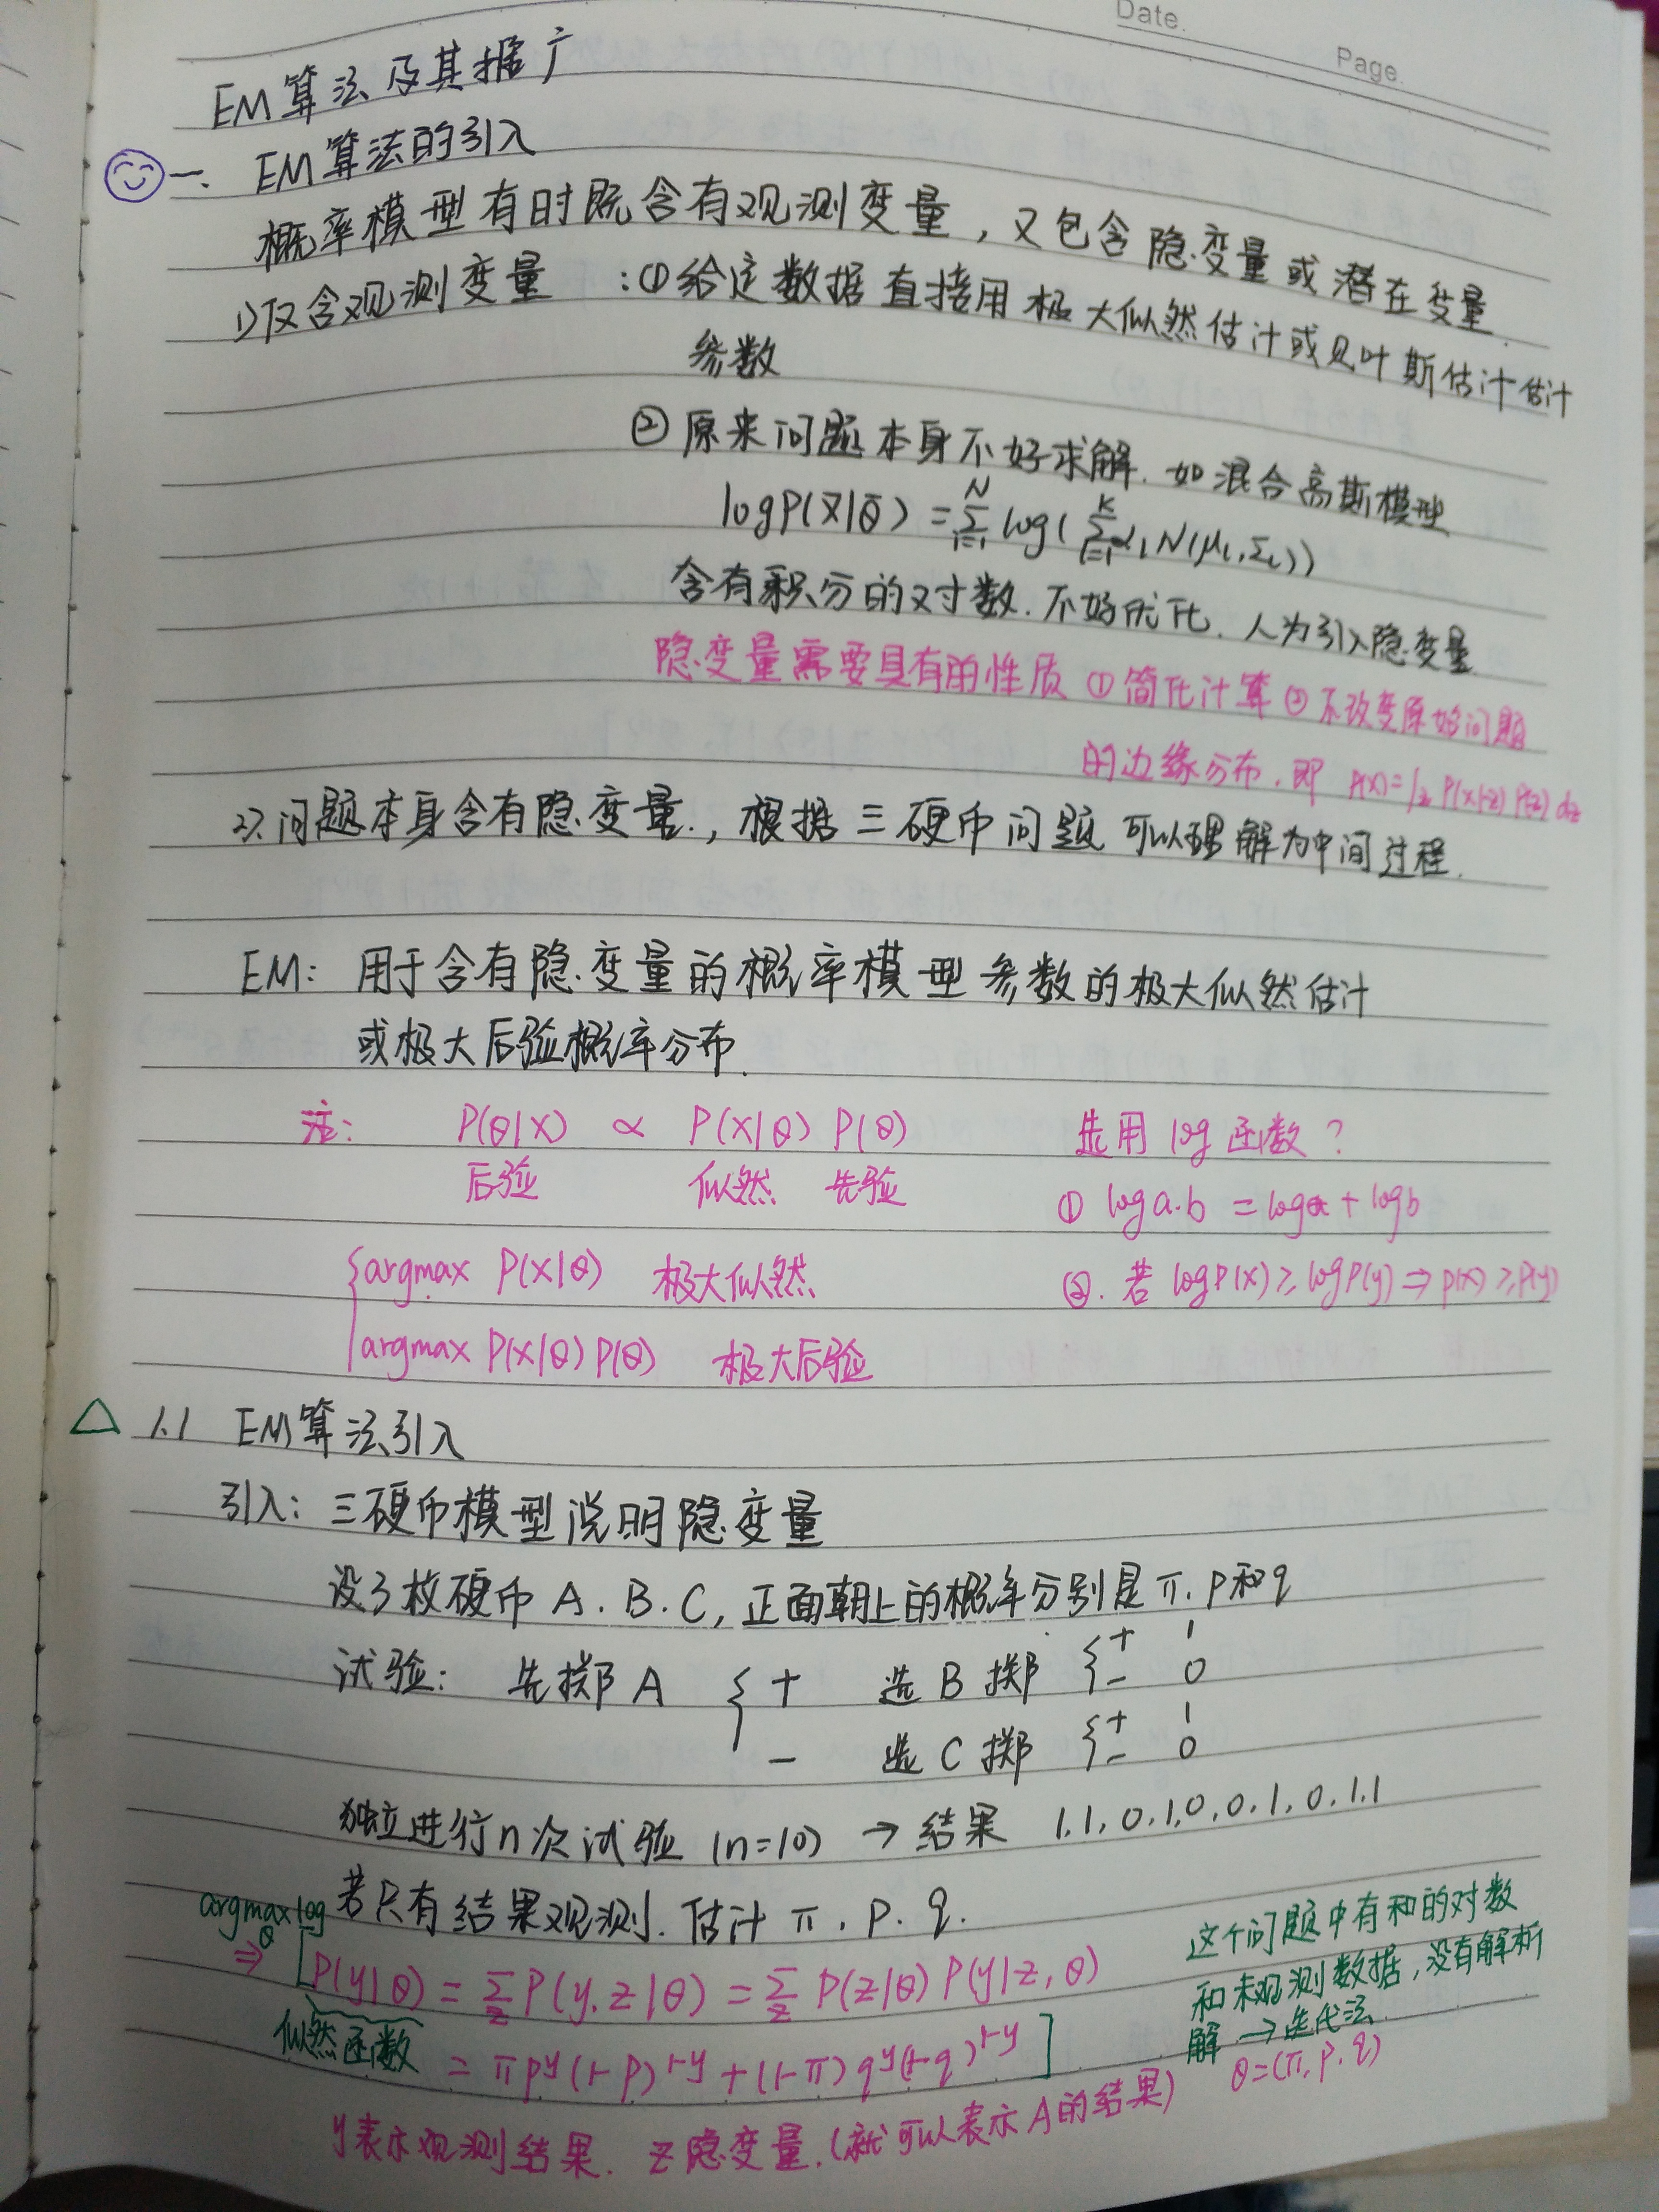 Date.
Page.
EM算法及其推广
一. EM算法的引入
概率模型有时既含有观测变量，又包含隐变量或潜在变量.
1)仅含观测变量 :①给定数据直接用极大似然估计或贝叶斯估计估计
参数
②原来问题本身不好求解.如混合高斯模型
logP(X|θ) = Σ_{i=1}^{N} log( Σ_{l=1}^{K} α_l N(μ_l, Σ_l))
含有积分的对数.不好优化.人为引入隐变量
隐变量需要具有的性质 ①简化计算 ②不改变原始问题
的边缘分布.即 P(x)=∫_z P(x|z) P(z) dz
2).问题本身含有隐变量.，根据三硬币问题可以理解为中间过程.
EM: 用于含有隐变量的概率模型参数的极大似然估计
或极大后验概率分布.
注: P(θ|X) ∝ P(X|θ) P(θ) 选用 log 函数？
后验 似然 先验 ① log a.b = log a + log b
{argmax P(X|θ) 极大似然 ②. 若 logP(x) ≥ logP(y) ⇒ P(x) ≥ P(y)
argmax P(X|θ) P(θ) 极大后验
△ 1.1 EM算法引入
引入: 三硬币模型说明隐变量
设3枚硬币 A. B. C, 正面朝上的概率分别是 π. p和q
试验: 先掷A { + 选B掷 { + 1
- 0
- 选C掷 { + 1
- 0
独立进行n次试验 (n=10) → 结果 1.1,0,1,0,0,1,0,1,1
若只有结果观测.估计 π. p. q.
argmax_θ log
⇒ [P(y|θ) = Σ_z P(y,z|θ) = Σ_z P(z|θ) P(y|z,θ)
似然函数 = πp^y(1-p)^{1-y} + (1-π)q^y(1-q)^{1-y}]
这个问题中有和的对数
和未观测数据，没有解析
解 → 迭代法
θ=(π, p, q)
y表示观测结果. z隐变量.(就可以表示A的结果)